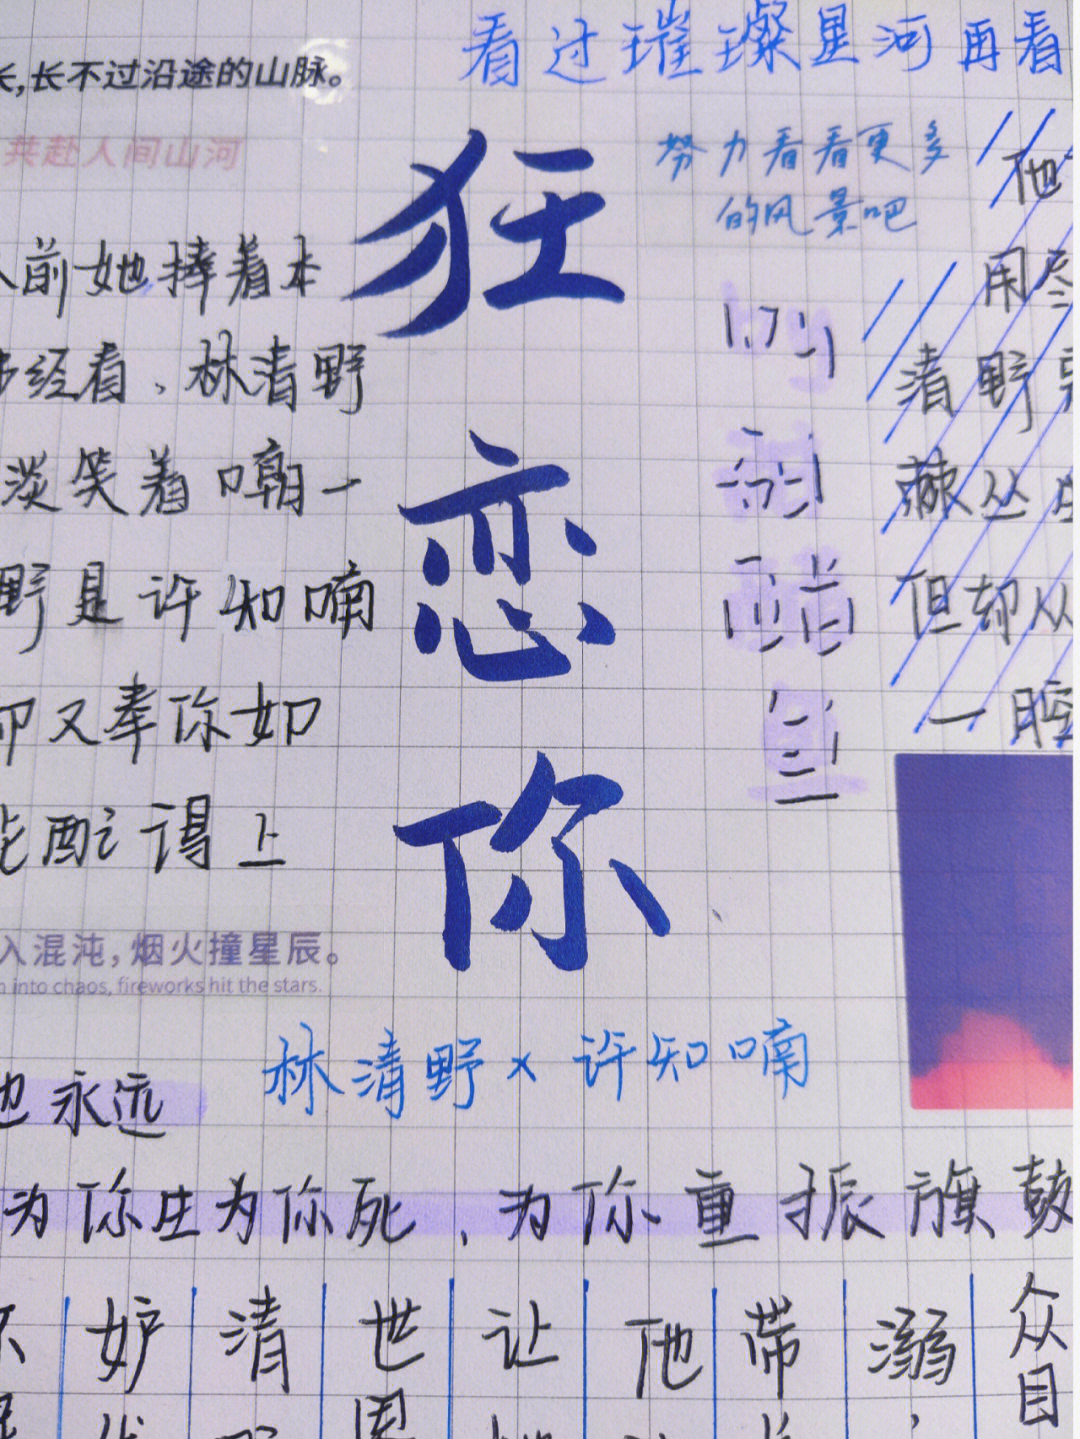 看过璀璨星河再看
长,长不过沿途的山脉。
共赴人间山河
努力看看更多
的风景吧
狂恋你
人前她捧着本
经看、林清野
淡笑着嘲一
野是许知喃
却又奉你如
配得上
by
酉告
他
用尽
清野
棘丛
但却从
一腔
入混沌,烟火撞星辰。
into chaos, fireworks hit the stars.
林清野×许知喃
也永远
为你生为你死、为你重振旗鼓
妒
清
世
因
让
他
带
溺
众目